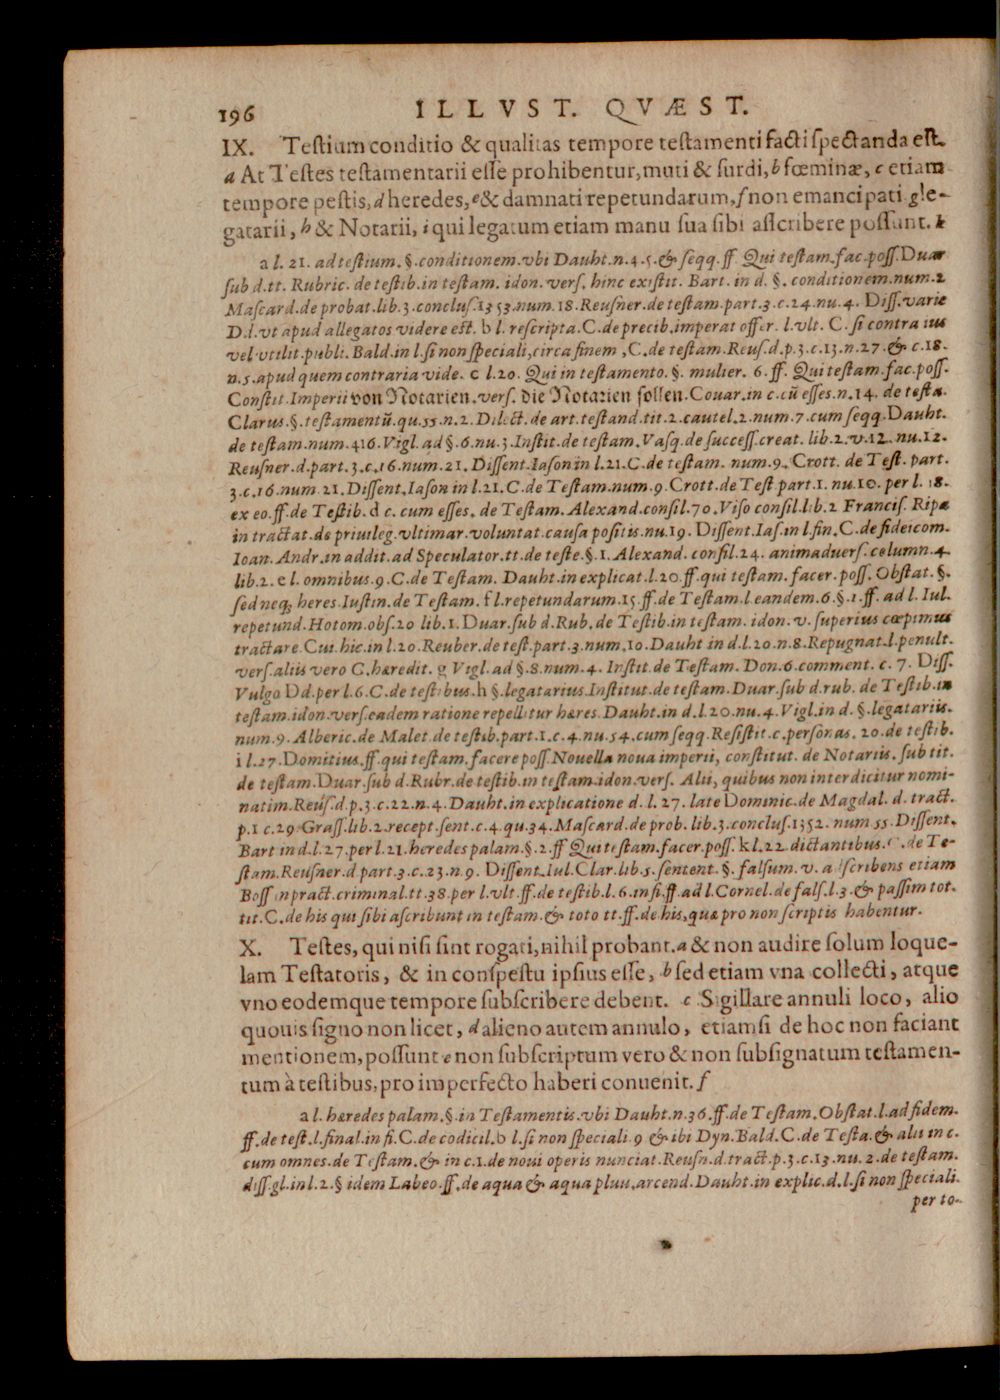 196 ILLVST. QVÆST.
IX. Teſtium conditio & qualitas tempore teſtamenti facti ſpectanda eſt.
a At Teſtes teſtamentarii eſſe prohibentur, muti & ſurdi, b fœminæ, c etiam
tempore peſtis, d heredes, e & damnati repetundarum, f non emancipati g le-
gatarii, h & Notarii, i qui legatum etiam manu ſua ſibi aſſcribere poſſunt. k
a l. 21. ad teſtium. §. conditionem. vbi Dauht. n. 4. 5. & ſeqq. ff Qui teſtam. fac. poſſ. Duar
ſub d. tt. Rubric. de teſtib. in teſtam. idon. verſ. hinc exiſtit. Bart. in d. §. conditionem. num. 2
Maſcard. de probat. lib. 3. concluſ. 1353. num. 18. Reuſner. de teſtam. part. 3. c. 24. nu. 4. Diſſ. varie
D. l. vt apud allegatos videre eſt. b l. reſcripta. C. de precib. imperat offer. l. vlt. C. ſi contra ius
vel vtilit. publi. Bald. in l. ſi non ſpeciali, circa finem, C. de teſtam. Reuſ. d. p. 3. c. 13. n. 27. & c. 18.
n. 5. apud quem contraria vide. c l. 20. Qui in teſtamento. §. mulier. 6. ff. Qui teſtam. fac. poſſ.
Conſtit. Imperii von Notarien. verſ. die Notarien ſollen. Couar. in c. cũ eſſes. n. 14. de teſta.
Clarus. §. teſtamentũ. qu. 55. n. 2. Dilect. de art. teſtand. tit. 2. cautel. 2. num. 7. cum ſeqq. Dauht.
de teſtam. num. 416. Vigl. ad §. 6. nu. 3. Inſtit. de teſtam. Vaſq. de ſucceſſ. creat. lib. 2. v. 12. nu. 12.
Reuſner. d. part. 3. c. 16. num. 21. Diſſent. Iaſon in l. 21. C. de teſtam. num. 9. Crott. de Teſt. part.
3. c. 16. num 21. Diſſent. Iaſon in l. 21. C. de Teſtam. num. 9 Crott. de Teſt part. 1. nu. 10. per l. 18.
ex eo. ff. de Teſtib. d c. cum eſſes. de Teſtam. Alexand. conſil. 70. Viſo conſil. lib. 2 Franciſ. Ripa
in tractat. de priuileg. vltimar. voluntat. cauſa poſitis. nu. 19. Diſſent. Iaſ. in l. fin. C. de fideicom.
Ioan. Andr. in addit. ad Speculator. tt. de teſte. §. 1. Alexand. conſil. 24. animaduerſ. column. 4.
lib. 2. e l. omnibus. 9. C. de Teſtam. Dauht. in explicat. l. 20. ff. qui teſtam. facer. poſſ. Obſtat. §.
ſed neq; heres. Iuſtin. de Teſtam. f l. repetundarum. 15. ff. de Teſtam. l eandem. 6. §. 1. ff. ad l. Iul.
repetund. Hotom. obſ. 20 lib. 1. Duar. ſub d. Rub. de Teſtib. in teſtam. idon. v. ſuperius cœpimus
tractare. Cui. hic. in l. 20. Reuber. de teſt. part. 3. num. 10. Dauht in d. l. 20. n. 8. Repugnat. l. penult.
verſ. aliis vero C. hæredit. g Vigl. ad §. 8. num. 4. Inſtit. de Teſtam. Don. 6. comment. c. 7. Diſſ.
Vulgo Dd. per l. 6. C. de teſtibus. h §. legatarius. Inſtitut. de teſtam. Duar. ſub d. rub. de Teſtib. in
teſtam. idon. verſ. eadem ratione repellitur hæres. Dauht. in d. l. 20. nu. 4. Vigl. in d. §. legatariis.
num. 9. Alberic. de Malet. de teſtib. part. 1. c. 4. nu. 54. cum ſeqq. Reſiſtit. c. perſonas. 20. de teſtib.
i l. 27. Domitius. ff. qui teſtam. facere poſſ. Nouella noua imperii, conſtitut. de Notariis. ſub tit.
de teſtam. Duar. ſub d. Rubr. de teſtib. in teſtam. idon. verſ. Alii, quibus non interdicitur nomi-
natim. Reuſ. d. p. 3. c. 22. n. 4. Dauht. in explicatione d. l. 27. late Dominic. de Magdal. d. tract.
p. 1 c. 29. Graſſ. lib. 2. recept. ſent. c. 4. qu. 34. Maſcard. de prob. lib. 3. concluſ. 1352. num 55. Diſſent.
Bart in d. l. 27. per l. 21. heredes palam. §. 2. ff Qui teſtam. facer. poſſ. k l. 22 dictantibus. C. de Te-
ſtam. Reuſner. d part. 3. c. 23. n. 9. Diſſent. Iul. Clar. lib. 5. ſentent. §. falſum. v. adſcribens etiam
Boſſ in pract. criminal. tt. 38. per l. vlt. ff. de teſtib. l. 6. in fi. ff. ad l. Cornel. de falſ. l. 3. & paſſim tot.
tit. C. de his qui ſibi aſcribunt in teſtam. & toto tt. ff. de his, quæ pro non ſcriptis habentur.
X. Teſtes, qui niſi ſint rogati, nihil probant. a & non audire ſolum loque-
lam Teſtatoris, & in conſpeſtu ipſius eſſe, b ſed etiam vna collecti, atque
vno eodemque tempore ſubſcribere debent. c Sigillare annuli loco, alio
quouis ſigno non licet, d alieno autem annulo, etiamſi de hoc non faciant
mentionem, poſſunt e non ſubſcriptum vero & non ſubſignatum teſtamen-
tum à teſtibus, pro imperfecto haberi conuenit. f
a l. hæredes palam. §. in Teſtamentis. vbi Dauht. n. 36. ff. de Teſtam. Obſtat. l. ad fidem.
ff. de teſt. l. final. in fi. C. de codicil. b l. ſi non ſpeciali 9 & ibi Dyn. Bald. C. de Teſta. & alii in c.
cum omnes. de Teſtam. & in c. 1. de noui operis nunciat. Reuſn. d. tract. p. 3. c. 13. nu. 2. de teſtam.
diſſ. gl. in l. 2. § idem Labeo. ff. de aqua & aqua pluu. arcend. Dauht. in explic. d. l. ſi non ſpeciali.
per to-